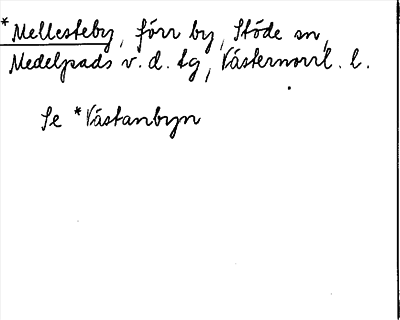 *Mellesteby, förr by, Stöde sn,
Medelpads v. d. tg, Västernorrl. l.
Se *Västanbyn